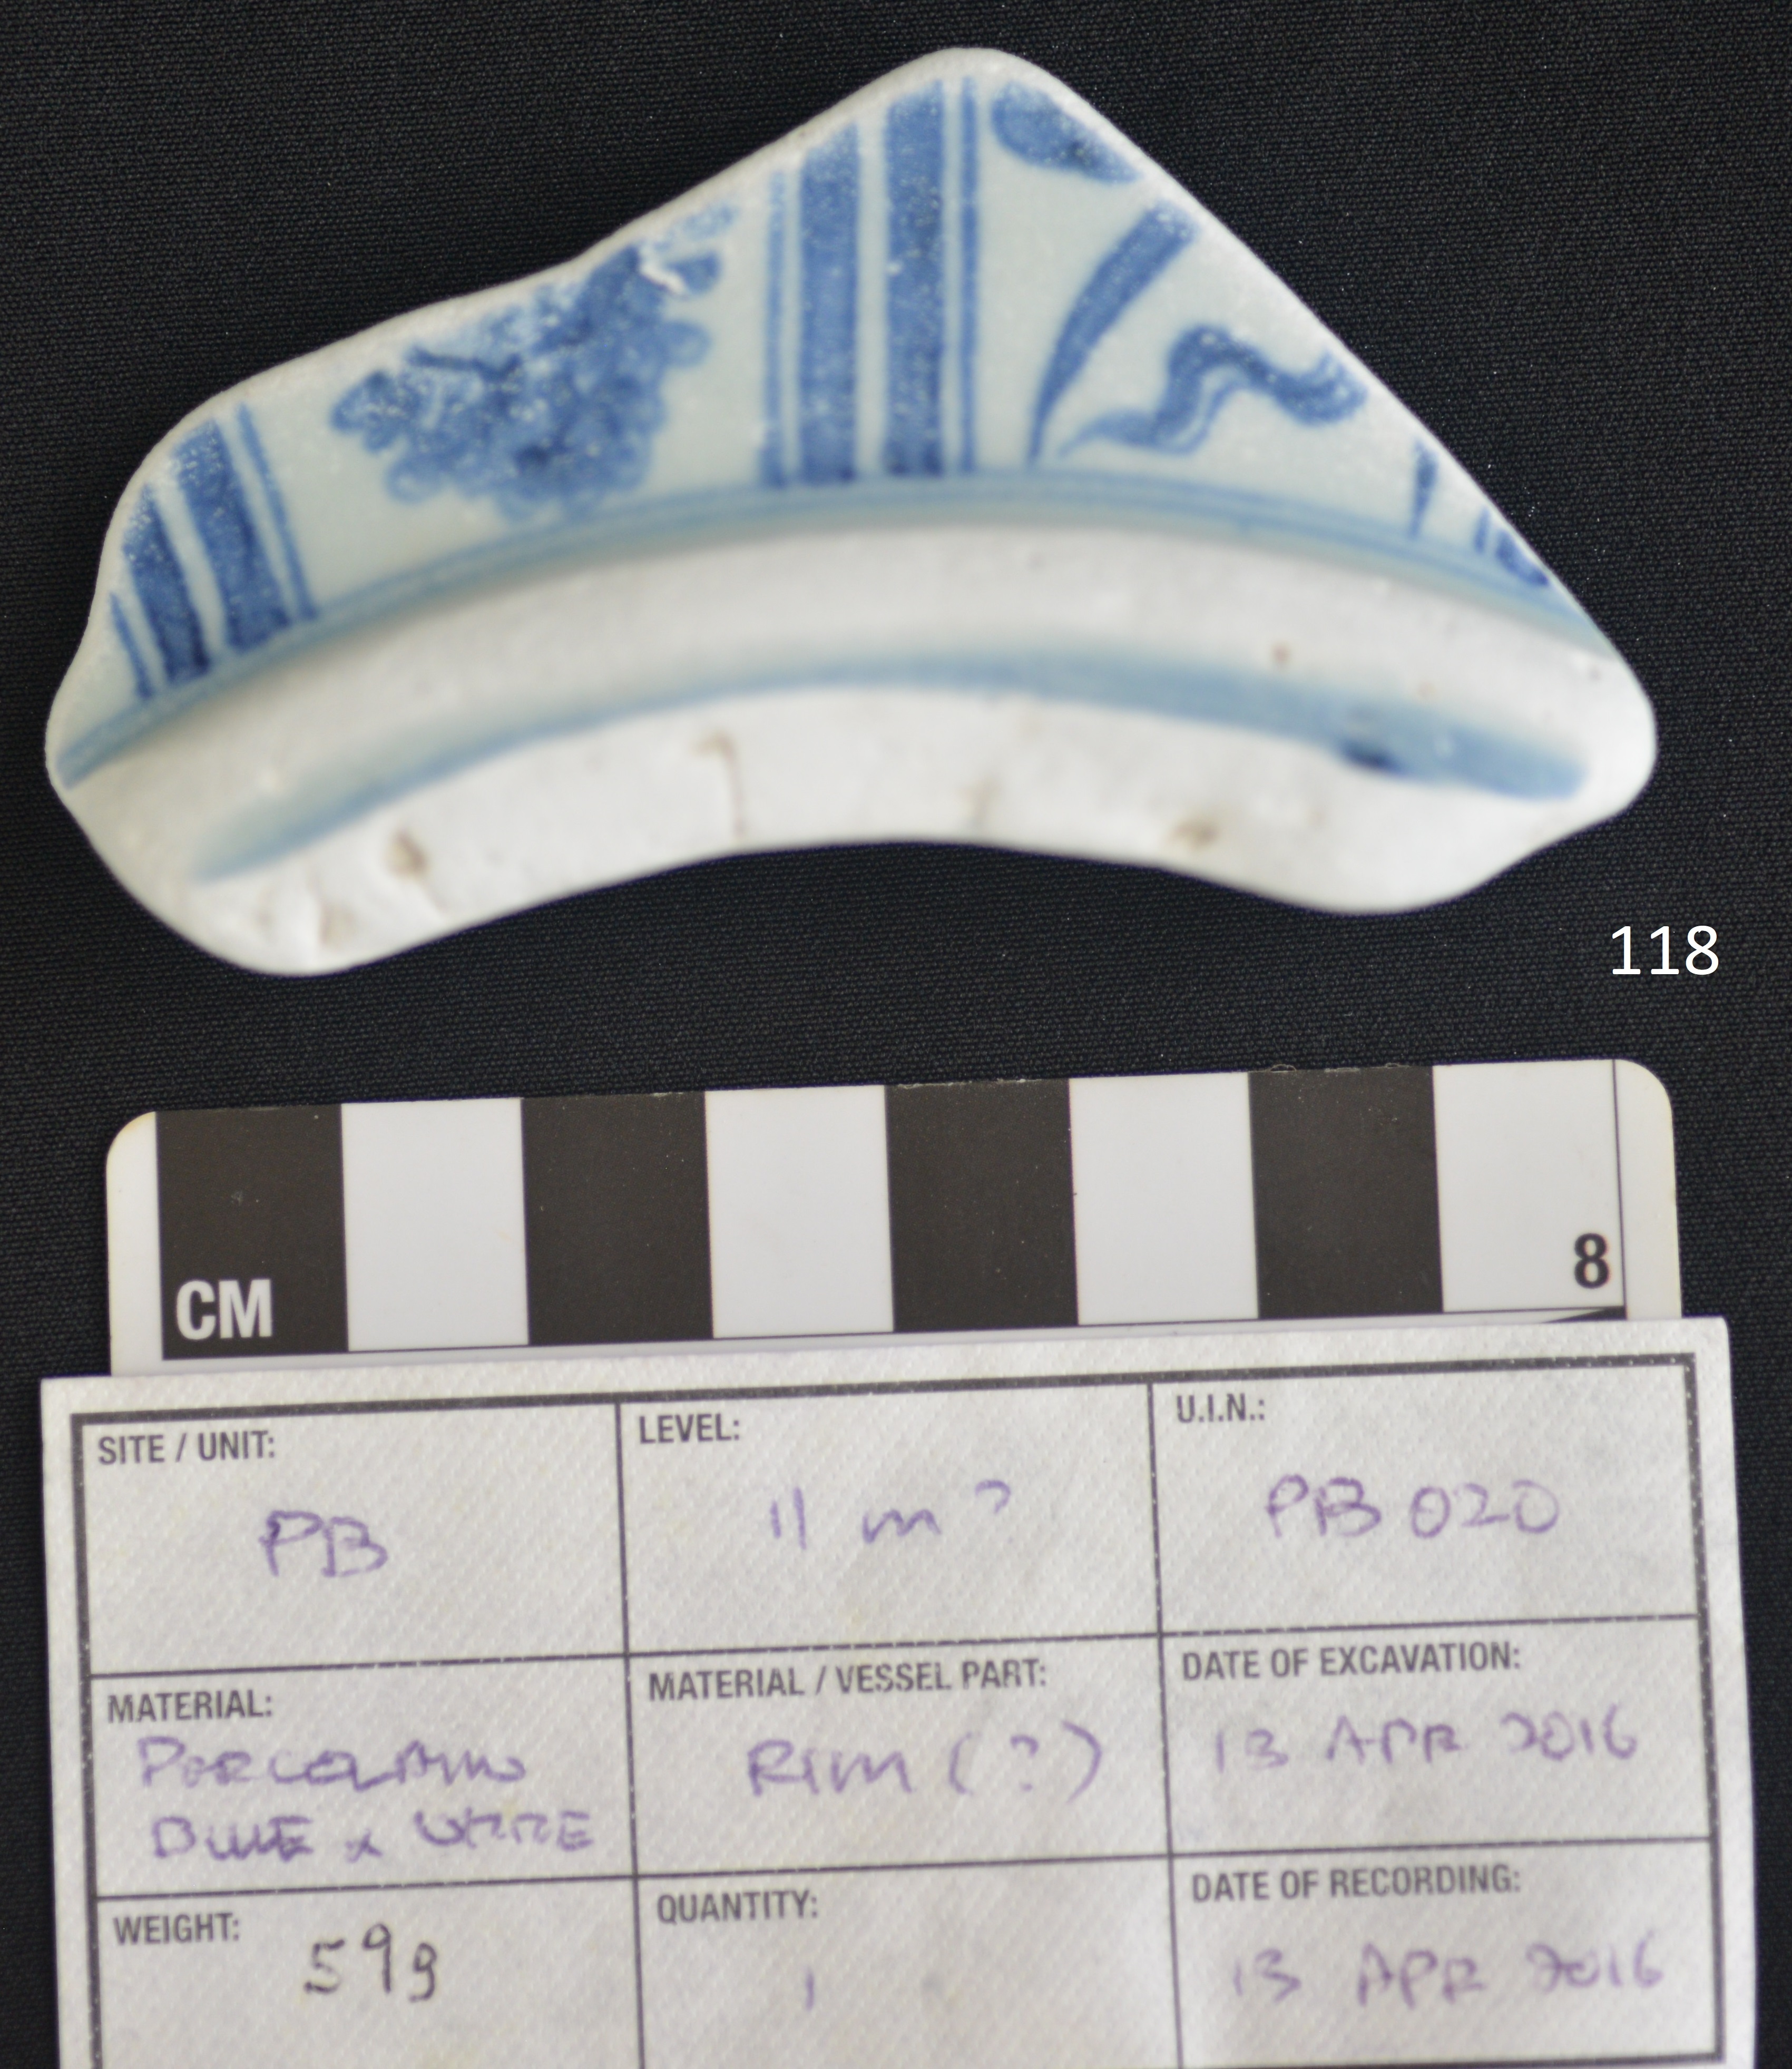 118
CM
8
SITE / UNIT:
PB
LEVEL:
11 m ?
U.I.N.:
PB 020
MATERIAL:
PORCELAIN
BLUE & WHITE
MATERIAL / VESSEL PART:
RIM (?)
DATE OF EXCAVATION:
13 APR 2016
WEIGHT:
59g
QUANTITY:
1
DATE OF RECORDING:
13 APR 2016